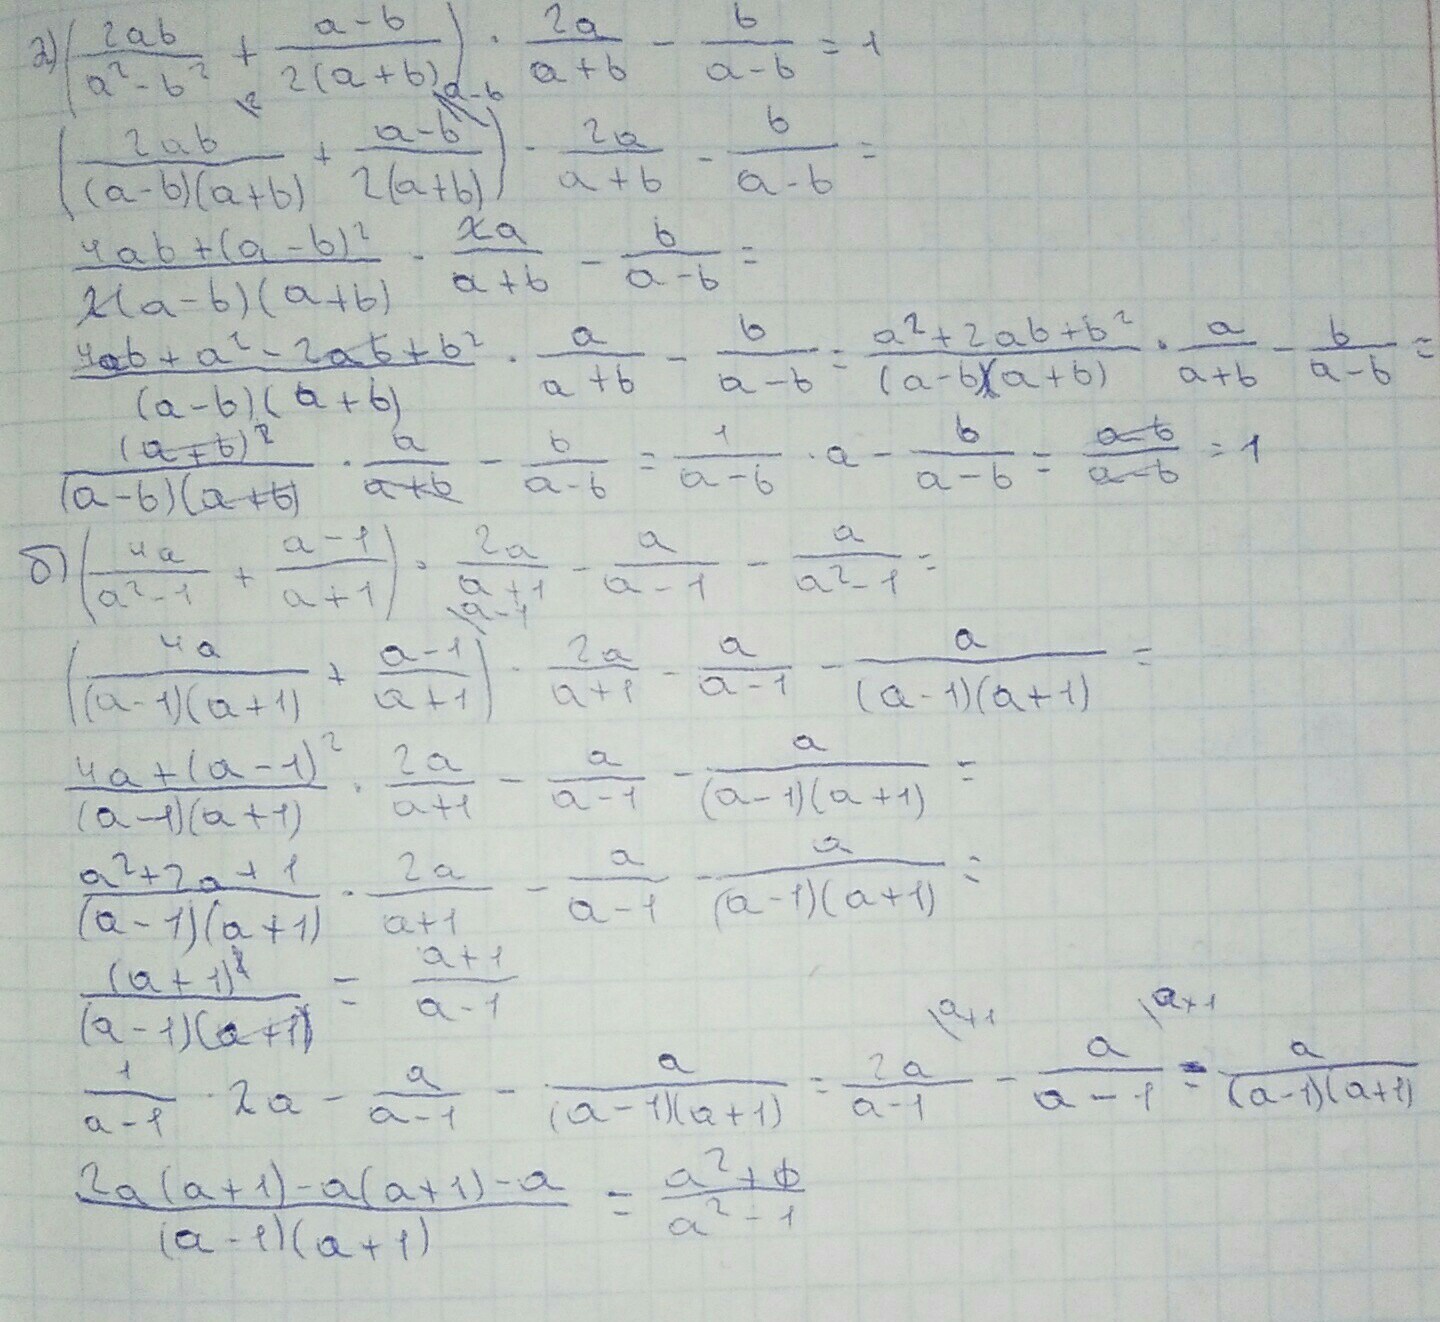 а) (2ab/(a²-b²) + (a-b)/(2(a+b))) · 2a/(a+b) - b/(a-b) = 1
(2ab/((a-b)(a+b)) \2 + (a-b)/(2(a+b)) \a-b) · 2a/(a+b) - b/(a-b) =
(4ab+(a-b)²)/(2(a-b)(a+b)) · 2a/(a+b) - b/(a-b) =
(4ab+a²-2ab+b²)/((a-b)(a+b)) · a/(a+b) - b/(a-b) = (a²+2ab+b²)/((a-b)(a+b)) · a/(a+b) - b/(a-b) =
(a+b)²/((a-b)(a+b)) · a/(a+b) - b/(a-b) = 1/(a-b) · a - b/(a-b) = (a-b)/(a-b) = 1
б) (4a/(a²-1) + (a-1)/(a+1)) · 2a/(a+1) - a/(a-1) - a/(a²-1) =
(4a/((a-1)(a+1)) + (a-1)/(a+1) \a-1) · 2a/(a+1) - a/(a-1) - a/((a-1)(a+1)) =
(4a+(a-1)²)/((a-1)(a+1)) · 2a/(a+1) - a/(a-1) - a/((a-1)(a+1)) =
(a²+2a+1)/((a-1)(a+1)) · 2a/(a+1) - a/(a-1) - a/((a-1)(a+1)) =
(a+1)²/((a-1)(a+1)) = (a+1)/(a-1)
1/(a-1) · 2a - a/(a-1) - a/((a-1)(a+1)) = 2a/(a-1) \a+1 - a/(a-1) \a+1 - a/((a-1)(a+1))
(2a(a+1)-a(a+1)-a)/((a-1)(a+1)) = (a²+0)/(a²-1)